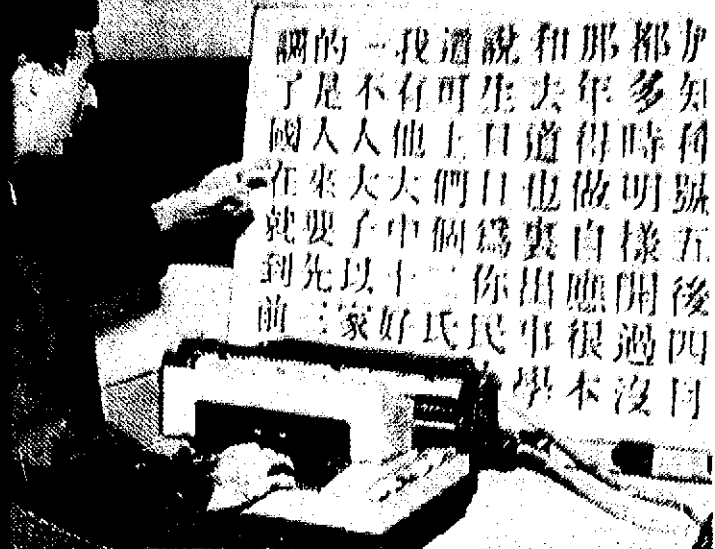 調的一我道說和那都
了是不有可生去年多知
國人人他上日道得時
在來大大們日也做明號
就要子中個為裏自樣五
到先以十二你出應開後
前三家好民民事很過四
學本沒